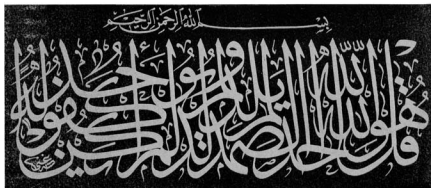 بِسْمِ اللّٰهِ الرَّحْمٰنِ الرَّحِيمِ
قُلْ هُوَ اللّٰهُ أَحَدٌ اللّٰهُ الصَّمَدُ لَمْ يَلِدْ وَلَمْ يُولَدْ وَلَمْ يَكُنْ لَهُ كُفُوًا أَحَدٌ